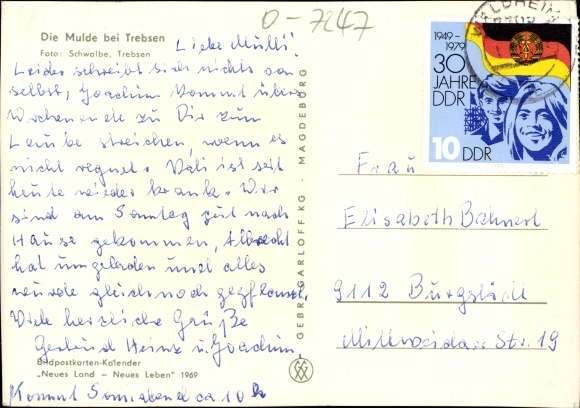 0-7247
Die Mulde bei Trebsen
Foto: Schwalbe, Trebsen
Liebe Mutti!
Leider schreibt sich nichts von
selbst, Joachim kommt übers
Wochenende zu Dir zum
Laube streichen, wenn es
nicht regnet. Vati ist seit
heute wieder krank. Wir
sind am Sonntag gut nach
Hause gekommen, Albrecht
hat umgeladen und alles
wurde gleich noch gepflanzt.
Viele herzliche Grüße
Gertrud Heinz u. Joachim
Bildpostkarten-Kalender
„Neues Land – Neues Leben" 1969
Kommt Sonnabend ca 10 h
GEBR. GARLOFF KG · MAGDEBURG
WALDHEIM
1949–
1979
30
JAHRE
DDR
10 DDR
Frau
Elisabeth Bahnert
9112 Burgstädt
Mittweidaer Str. 19